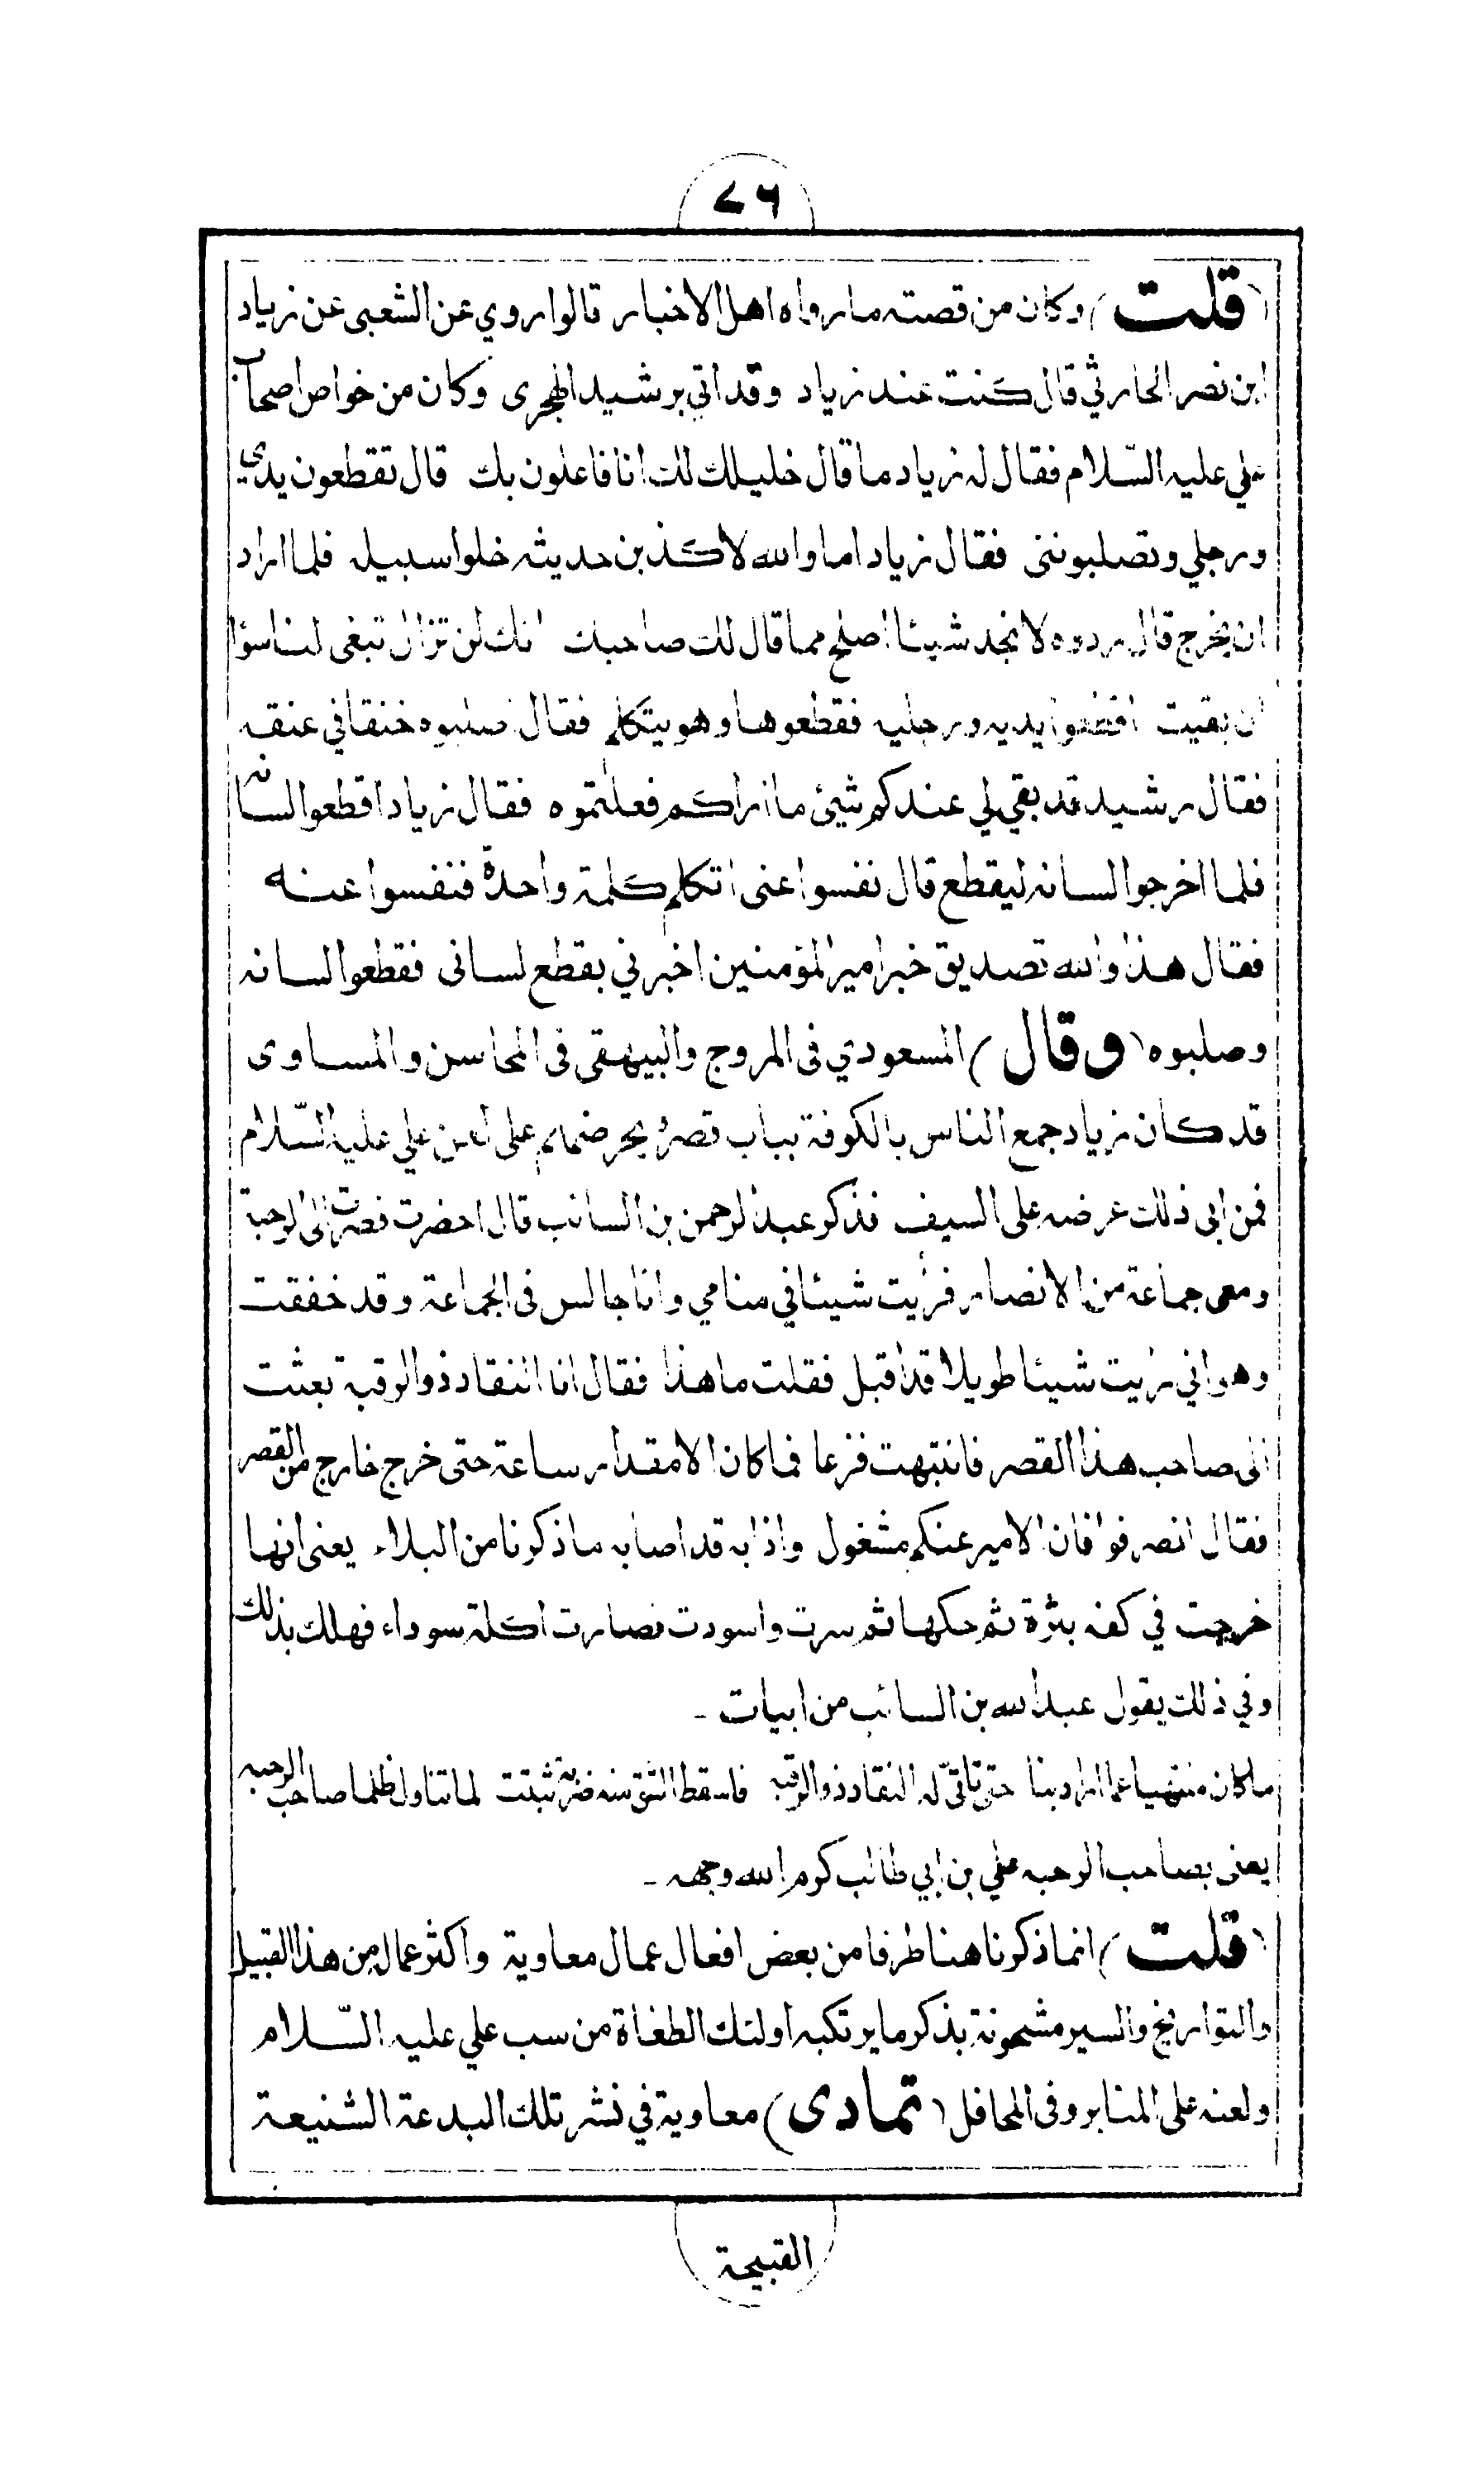 ٧٦
(قلت) وكان من قصته مارواه اهل الاخبار قالوا روي عن الشعبى عن زياد
ابن نصر الحارثي قال كنت عند زياد وقد اتي برشيد الهجرى وكان من خواص اصحاب
علي عليه السّلام فقال له زياد ما قال خليلك لك انا فاعلون بك قال تقطعون يدي
ورجلي وتصلبوننى فقال زياد اما والله لاكذبن حديثه خلوا سبيله فلما اراد
ان يخرج قال ردوه لا نجد شيئا اصلح مما قال لك صاحبك انك لن تزال تبغى لنا سؤا
ان بقيت اقطعوا يديه ورجليه فقطعوها وهو يتكلم فقال صلبوه خنقا في عنقه
فقال رشيد قد بقي لي عندكم شيئ ما اراكم فعلتموه فقال زياد اقطعوا لسانه
فلما اخرجوا لسانه ليقطع قال نفسوا عنى اتكلم كلمة واحدة فنفسوا عنه
فقال هذا والله تصديق خبر امير المؤمنين اخبرني بقطع لسانى فقطعوا لسانه
وصلبوه (وقال) المسعودي فى المروج والبيهقى فى المحاسن والمساوى
قد كان زياد جمع الناس بالكوفة بباب قصره يحرضهم على لعن علي عليه السّلام
فمن ابى ذلك عرضه على السيف فذكر عبد الرحمن بن السائب قال احضرت فصرت الى الرحبة
ومعى جماعة من الانصار فرئيت شيئا في منامي وانا جالس فى الجماعة وقد خفقت
وهو اني رئيت شيئا طويلا قد اقبل فقلت ما هذا فقال انا النقاد ذوالرقبة بعثت
الى صاحب هذا القصر فانتبهت فزعا فما كان الا مقدار ساعة حتى خرج خارج من القصر
فقال انصرفوا فان الامير عنكم مشغول واذا به قد اصابه ما ذكرنا من البلاء يعنى انها
خرجت في كفه بثرة ثم حكها ثم سرت واسودت فصارت اكلة سوداء فهلك بذلك
وفي ذلك يقول عبد الله بن السائب من ابيات -
ما كان منتهيا عما اراد بنا حتى تاتّى له النقاد ذوالرقبه فاسقط الشق منه ضربة ثبتت لما تناول ظلما صاحب الرحبه
يعنى بصاحب الرحبه علي بن ابي طالب كرم الله وجهه -
(قلت) انما ذكرنا هنا طرفا من بعض افعال عمال معاوية واكثر عماله من هذا القبيل
والتواريخ والسير مشحونة بذكر ما يرتكبه اولئك الطغاة من سب علي عليه السّلام
ولعنه على المنابر وفى المحافل (تمادى) معاوية في نشر تلك البدعة الشنيعة
القبيحة